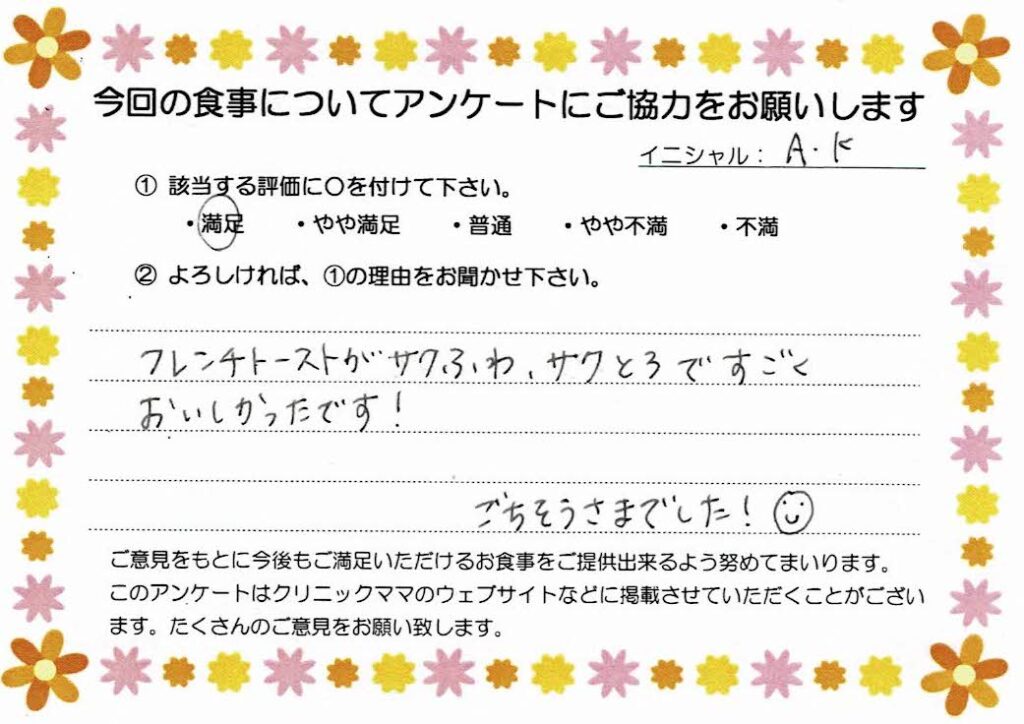 今回の食事についてアンケートにご協力をお願いします
イニシャル： A.K
① 該当する評価に○を付けて下さい。
・満足 ・やや満足 ・普通 ・やや不満 ・不満
② よろしければ、①の理由をお聞かせ下さい。
フレンチトーストがサクふわ、サクとろですごく
おいしかったです！
ごちそうさまでした！
ご意見をもとに今後もご満足いただけるお食事をご提供出来るよう努めてまいります。
このアンケートはクリニックママのウェブサイトなどに掲載させていただくことがござい
ます。たくさんのご意見をお願い致します。